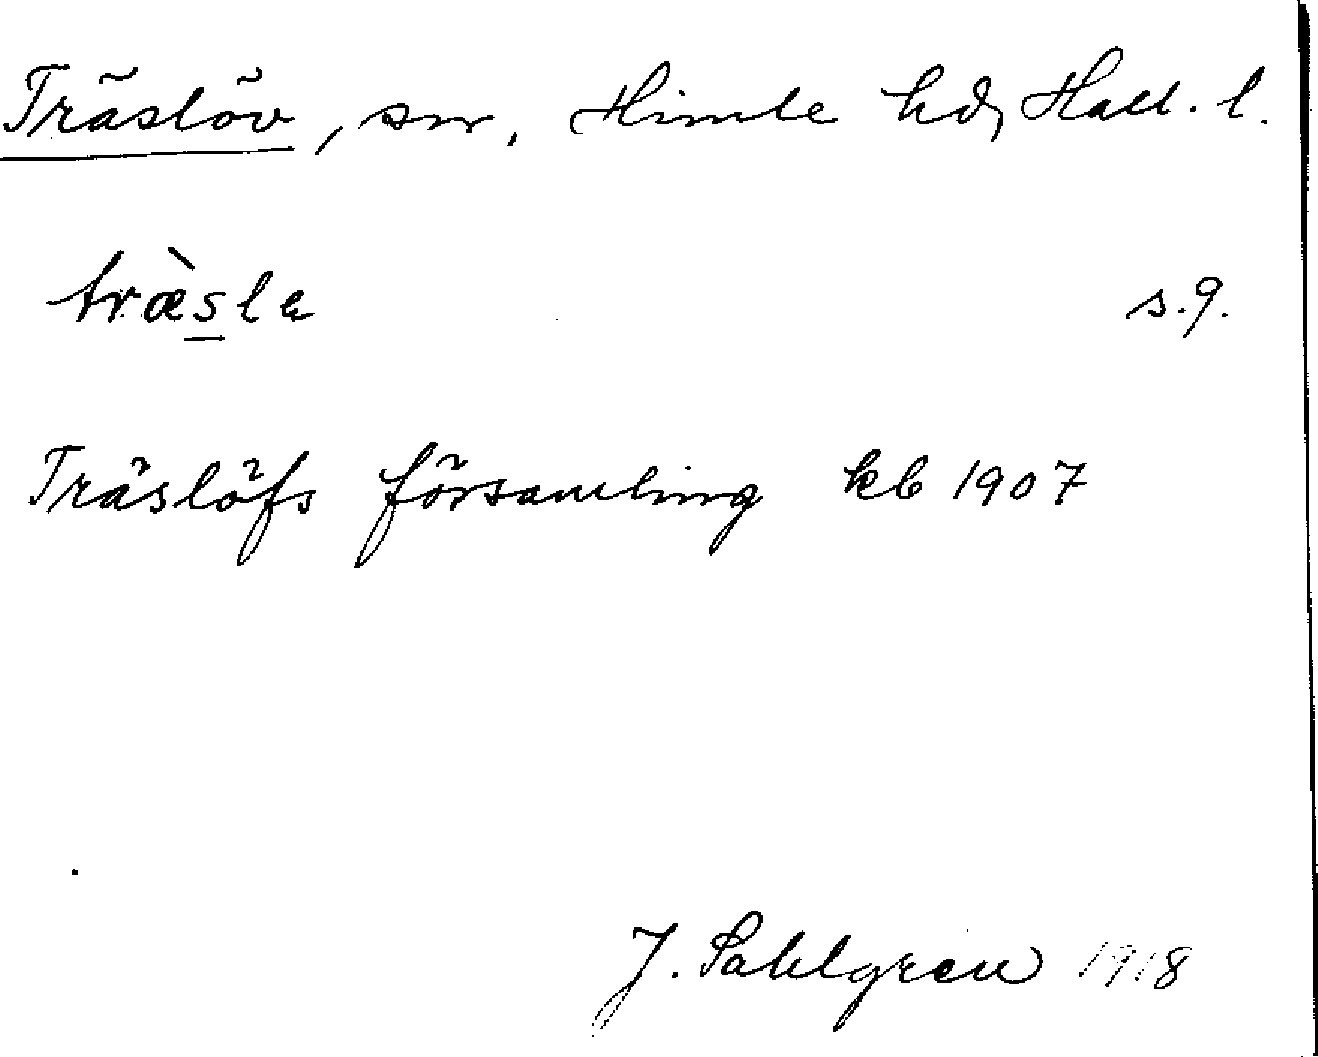 Träslöv, sn, Himle hd, Hall. l.
træ̀sla s.9.
Träslöfs församling kb 1907
J. Sahlgren 1918